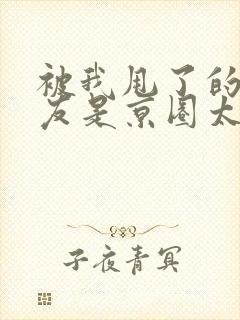 被我甩了的
友是京圈太
子夜青冥